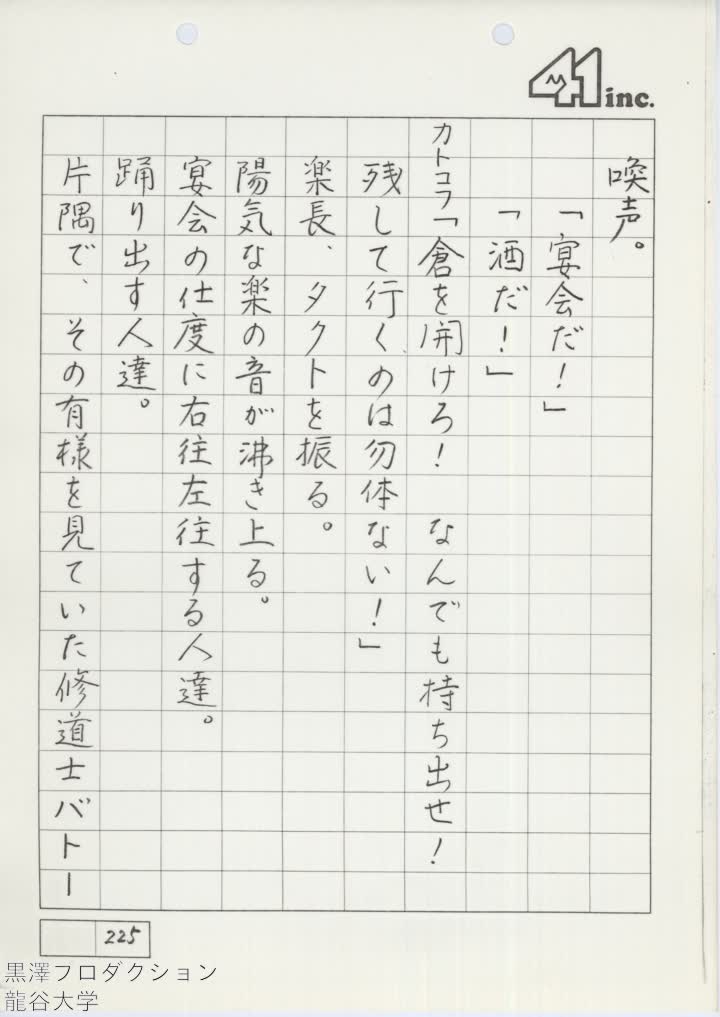 41 inc.
喚声。
「宴会だ！」
「酒だ！」
カトコフ「倉を開けろ！　なんでも持ち出せ！
残して行くのは勿体ない！」
楽長、タクトを振る。
陽気な楽の音が沸き上る。
宴会の仕度に右往左往する人達。
踊り出す人達。
片隅で、その有様を見ていた修道士バトー
225
黒澤プロダクション
龍谷大学